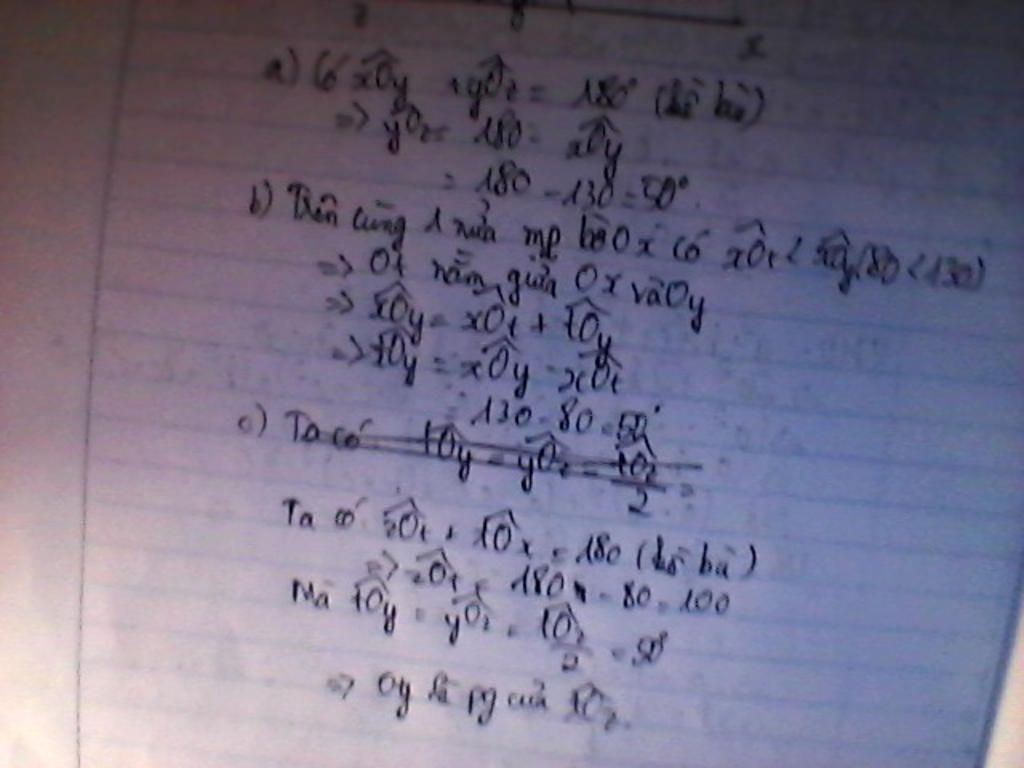 z y x
a) Có xÔy + yÔz = 180° (kề bù)
=> yÔz = 180 - xÔy
= 180 - 130 = 50°.
b) Trên cùng 1 nửa mp bờ Ox có xÔt < xÔy (80 < 130)
=> Ot nằm giữa Ox và Oy
=> xÔy = xÔt + tÔy
=> tÔy = xÔy - xÔt
= 130 - 80 = 50°
c) Ta có tÔy = yÔz = tÔz/2 =
Ta có zÔt + tÔx = 180 (kề bù)
=> zÔt = 180 - 80 = 100
Mà tÔy = yÔz = tÔz/2 = 50°
=> Oy là pg của tÔz.